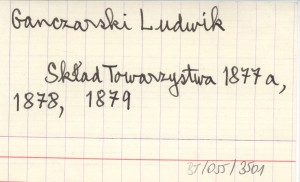 Ganczarski Ludwik
Skład Towarzystwa 1877 a,
1878, 1879
BJ/055/3501